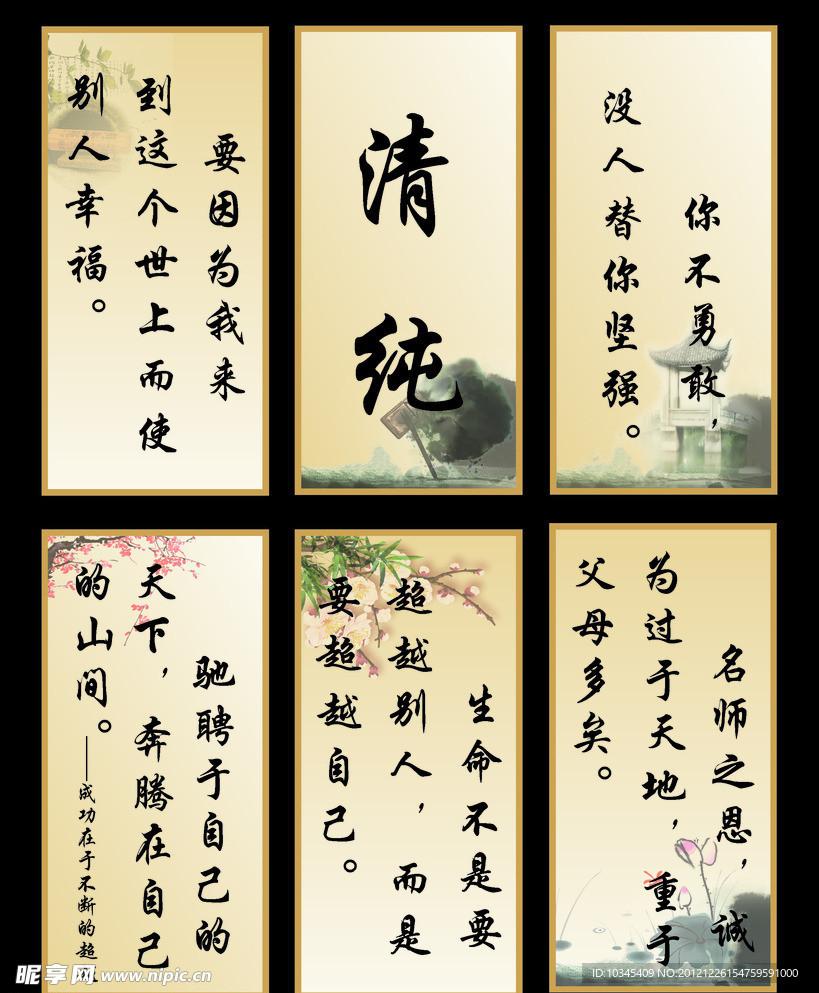 要因为我来
到这个世上而使
别人幸福。
清纯
你不勇敢，
没人替你坚强。
驰聘于自己的
天下，奔腾在自己
的山间。
——成功在于不断的超
生命不是要
超越别人，而是
要超越自己。
名师之恩，诚
为过于天地，重于
父母多矣。
昵享网 www.nipic.cn
ID:10345409 NO.20121226154759591000